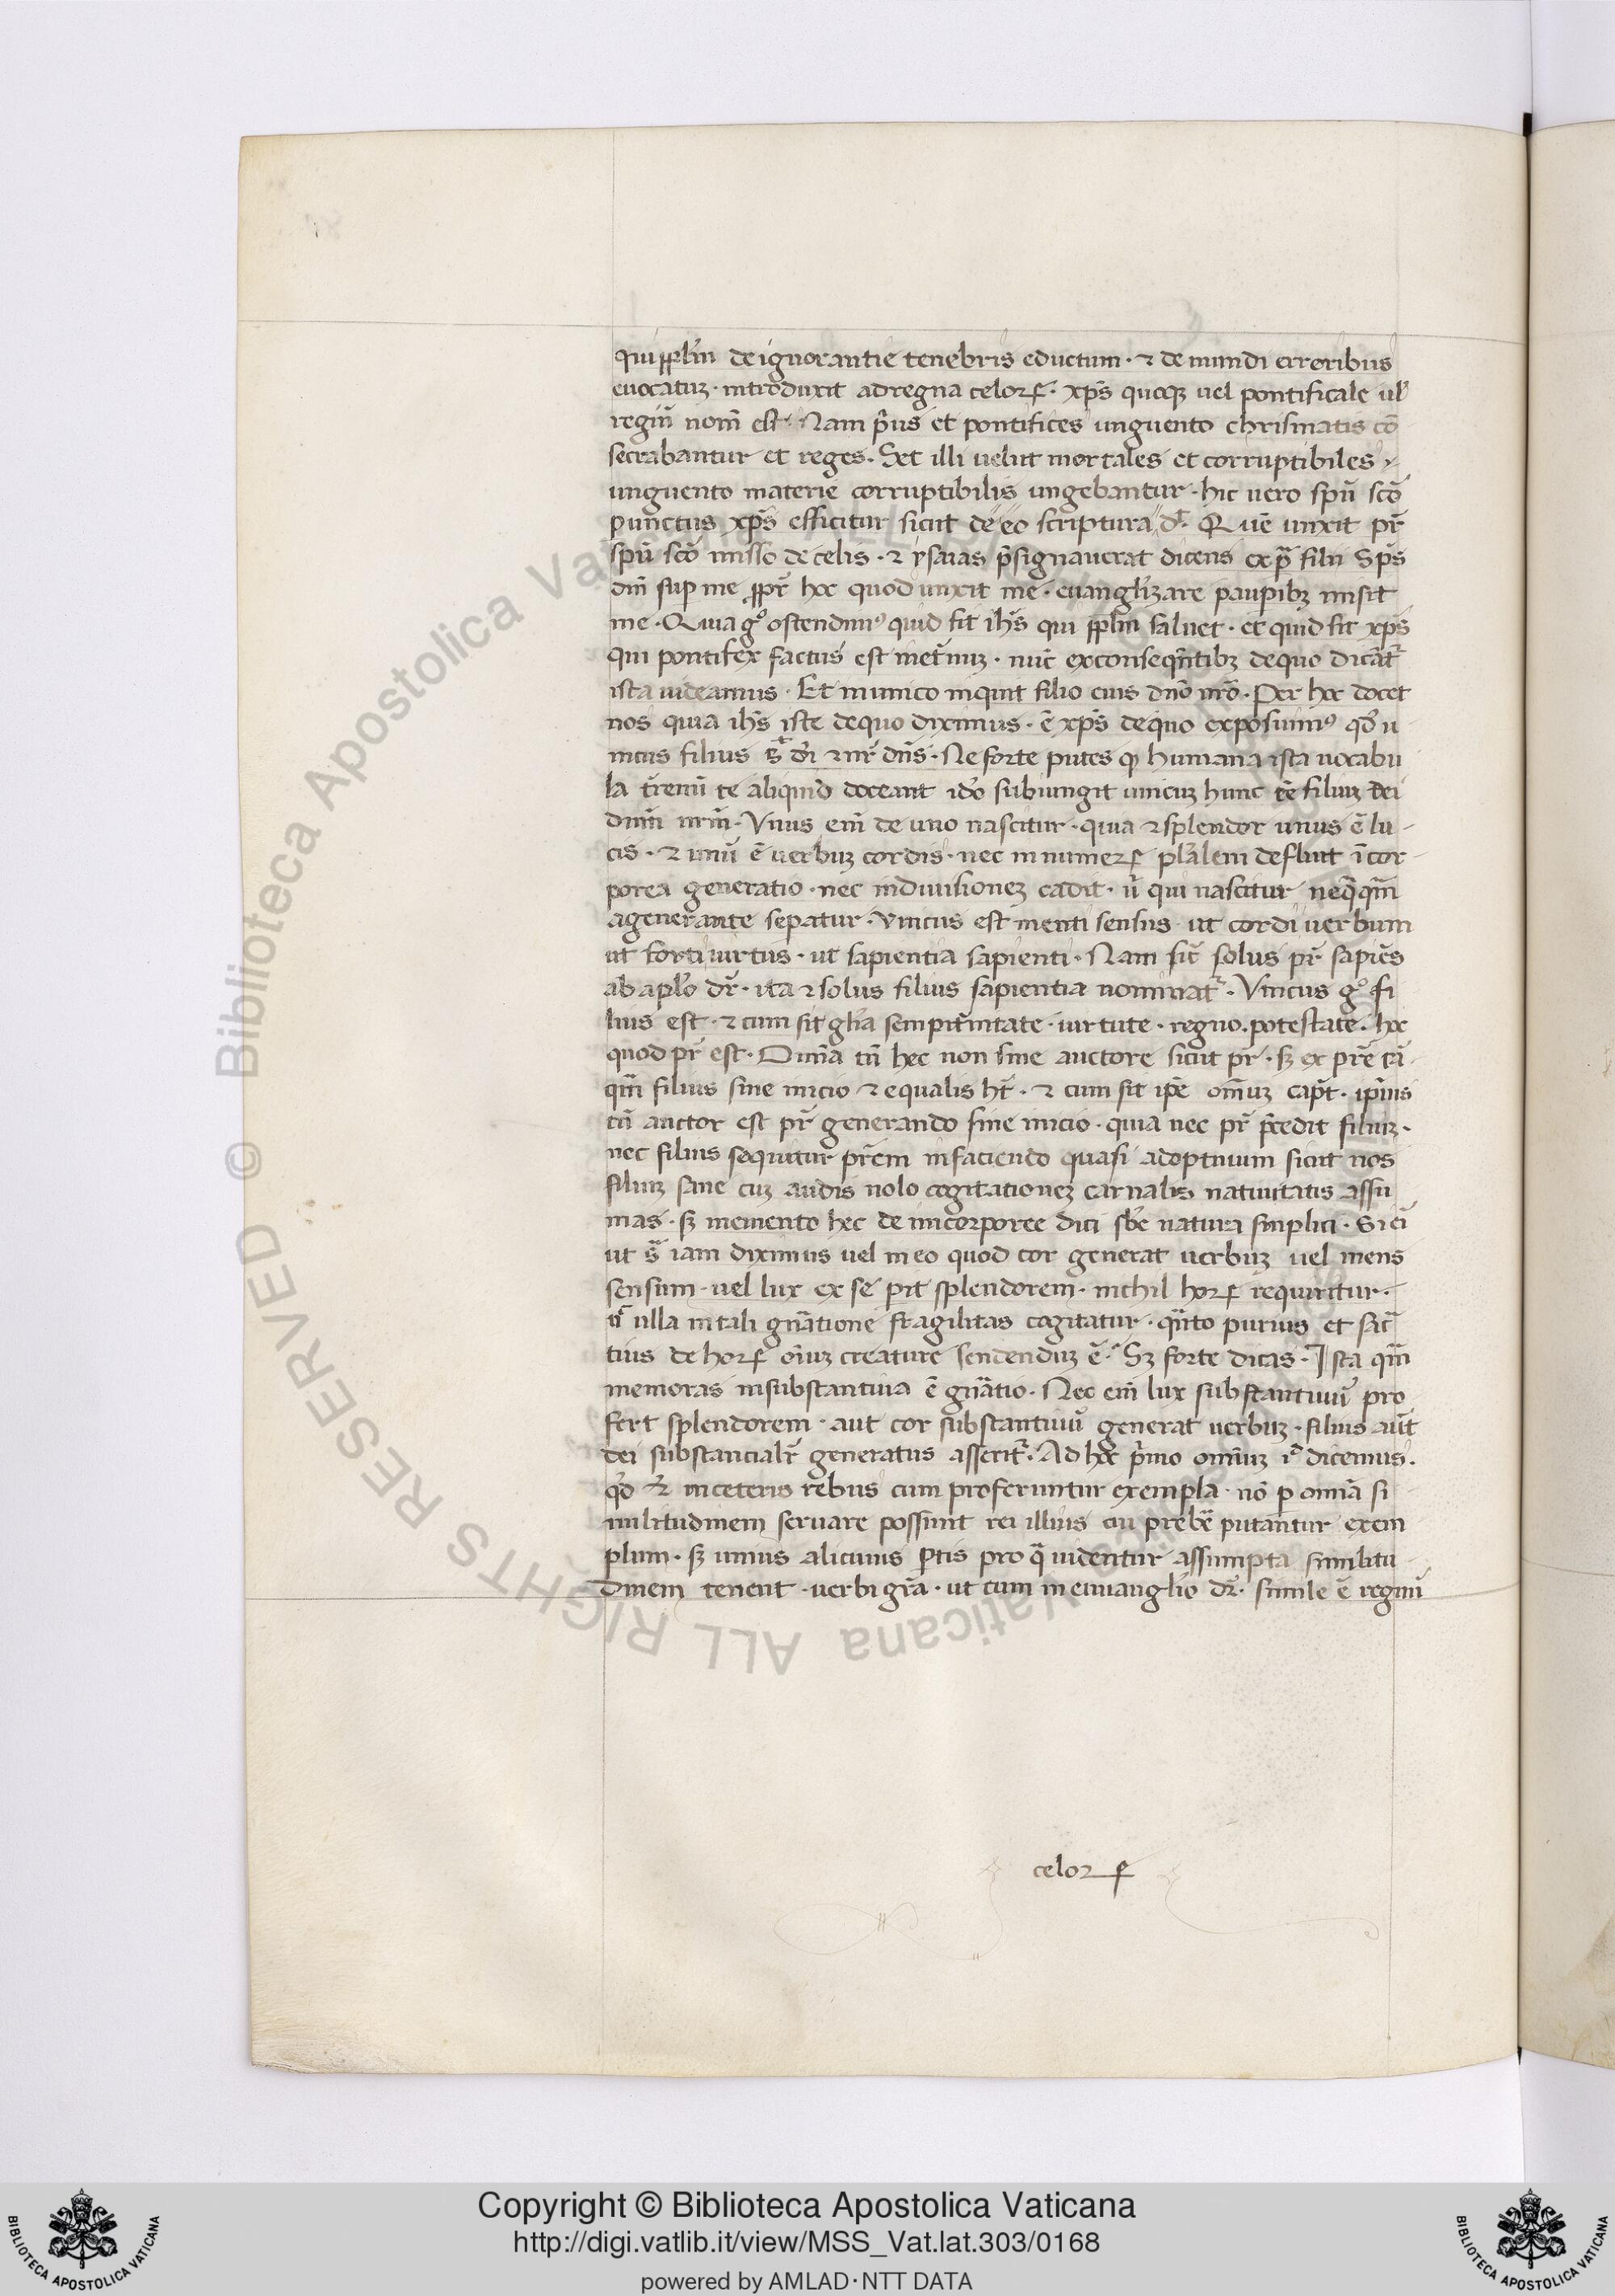 qui ppl̄m de ignorantie tenebris eductum · ⁊ de mundi erroribus
euocatuꝫ · introduxit ad regna celoꝝ · xp̄s quoqꝫ uel pontificale ul̓
regiū nom̄ est · Nam p̓us et pontifices unguento chrismatis cō
secrabantur et reges · Set illi uelut mortales et corruptibiles ·
unguento materie corruptibilis ungebantur · hic uero spū scō
punctus xp̄s efficitur sicut de eo scriptura d̓t · Quē unxit pr̄
spū scō misso de celis · ⁊ ysaias p̄signauerat dicens ex p̄ filii Sp̄s
dn̄i sup me ꝓpr̄ hoc quod unxit me · euangl̓izare paupibꝫ misit
me · Quia gͦ ostendimꝰ quid sit ih̄s qui ppl̄m saluet · et quid sit xp̄s
qui pontifex factus est inet̓nuꝫ · nūc ex conseqūtibꝫ de quo dicāt̓
ista uideamus · Et in unico inquit filio eius dn̄o nr̄o · Per hoc docet
nos quia ih̄s iste de quo diximus · ē xp̄s de quo exposuimꝰ qd̓ u
nicus filius s̄t di ⁊ nr̄ dn̄s · Ne forte putes ꝙ humana ista uocabu
la t̓renū te aliquid doceant ido̓ subiungit unicuꝫ hunc eē filiuꝫ dei
dn̄m nr̄m · Vnus em̄ de uno nascitur · quia ⁊ splendor unus ē lu-
cis · ⁊ unū ē uerbuꝫ cordis · nec in numeꝝ pl̓alem defluit īcor-
porea generatio · nec in diuisioneꝫ cadit · u̓ qui nascitur neq̄qm̄
a generante sepatur · Vnicus est menti sensus · ut cordi uerbum
ut forti uirtus · ut sapientia sapienti · Nam sic̄ solus pr̄ sapiēs
ab aplo̓ dr̄ · ita ⁊ solus filius sapientia nominat̓ · Vnicus gͦ fi
lius est · ⁊ cum sit gl̓ia sempit̓nitate · uirtute · regno · potestate · hoc
quod pr̄ est · Om̄ia tn̄ hec non sine auctore sicut pr̄ · sꝫ ex pr̄e tā-
qm̄ filius sine inicio ⁊ equalis ht̄ · ⁊ cum sit ip̄e om̄iuꝫ cap̄t · ip̄ius
tn̄ auctor est pr̄ generando sine inicio · quia nec pr̄ p̄cedit filiuꝫ ·
nec filius sequitur pr̄em in faciendo quasi adoptiuum sicut nos
filiuꝫ sane cuꝫ audis nolo cogitationeꝫ carnalis natiuitatis assu
mas · sꝫ memento hec de incorporee dici sbe̓ natura simplici · Si ei
ut s̄ iam diximus uel in eo quod cor generat uerbuꝫ uel mens
sensum · uel lux ex se parit splendorem · nichil hoꝝ requiritur ·
u̓ ulla in tali gn̄atione fragilitas cogitatur · qn̄to purius et sac̄
tius de hoꝝ oīuꝫ creature sendenduꝫ ē · Sꝫ forte dicas · Ista qm̄
memoras insubstantiua ē gn̄atio · Nec em̄ lux substantiuū pro
fert splendorem · aut cor substantiuū generat uerbuꝫ · filius aūt
dei substancialr̄ generatus asserit̓ · Ad hoc p̓mo omniuꝫ id̓ dicemus ·
qd̓ ⁊ in ceteris rebus cum proferuntur exempla · nō p omnīa si
militudinem seruare possunt rei illius cui prebē putantur exem
plum · sꝫ unius alicuius ptis pro q̄ uidentur assumpta similitu
dinem tenent · uerbi grā · ut cum in euuangl̓io dr̄ · simile ē regnū
celoꝝ
Copyright © Biblioteca Apostolica Vaticana
http://digi.vatlib.it/view/MSS_Vat.lat.303/0168
powered by AMLAD·NTT DATA
BIBLIOTECA APOSTOLICA VATICANA
BIBLIOTECA APOSTOLICA VATICANA
© Biblioteca Apostolica Vaticana ALL RIGHTS RESERVED